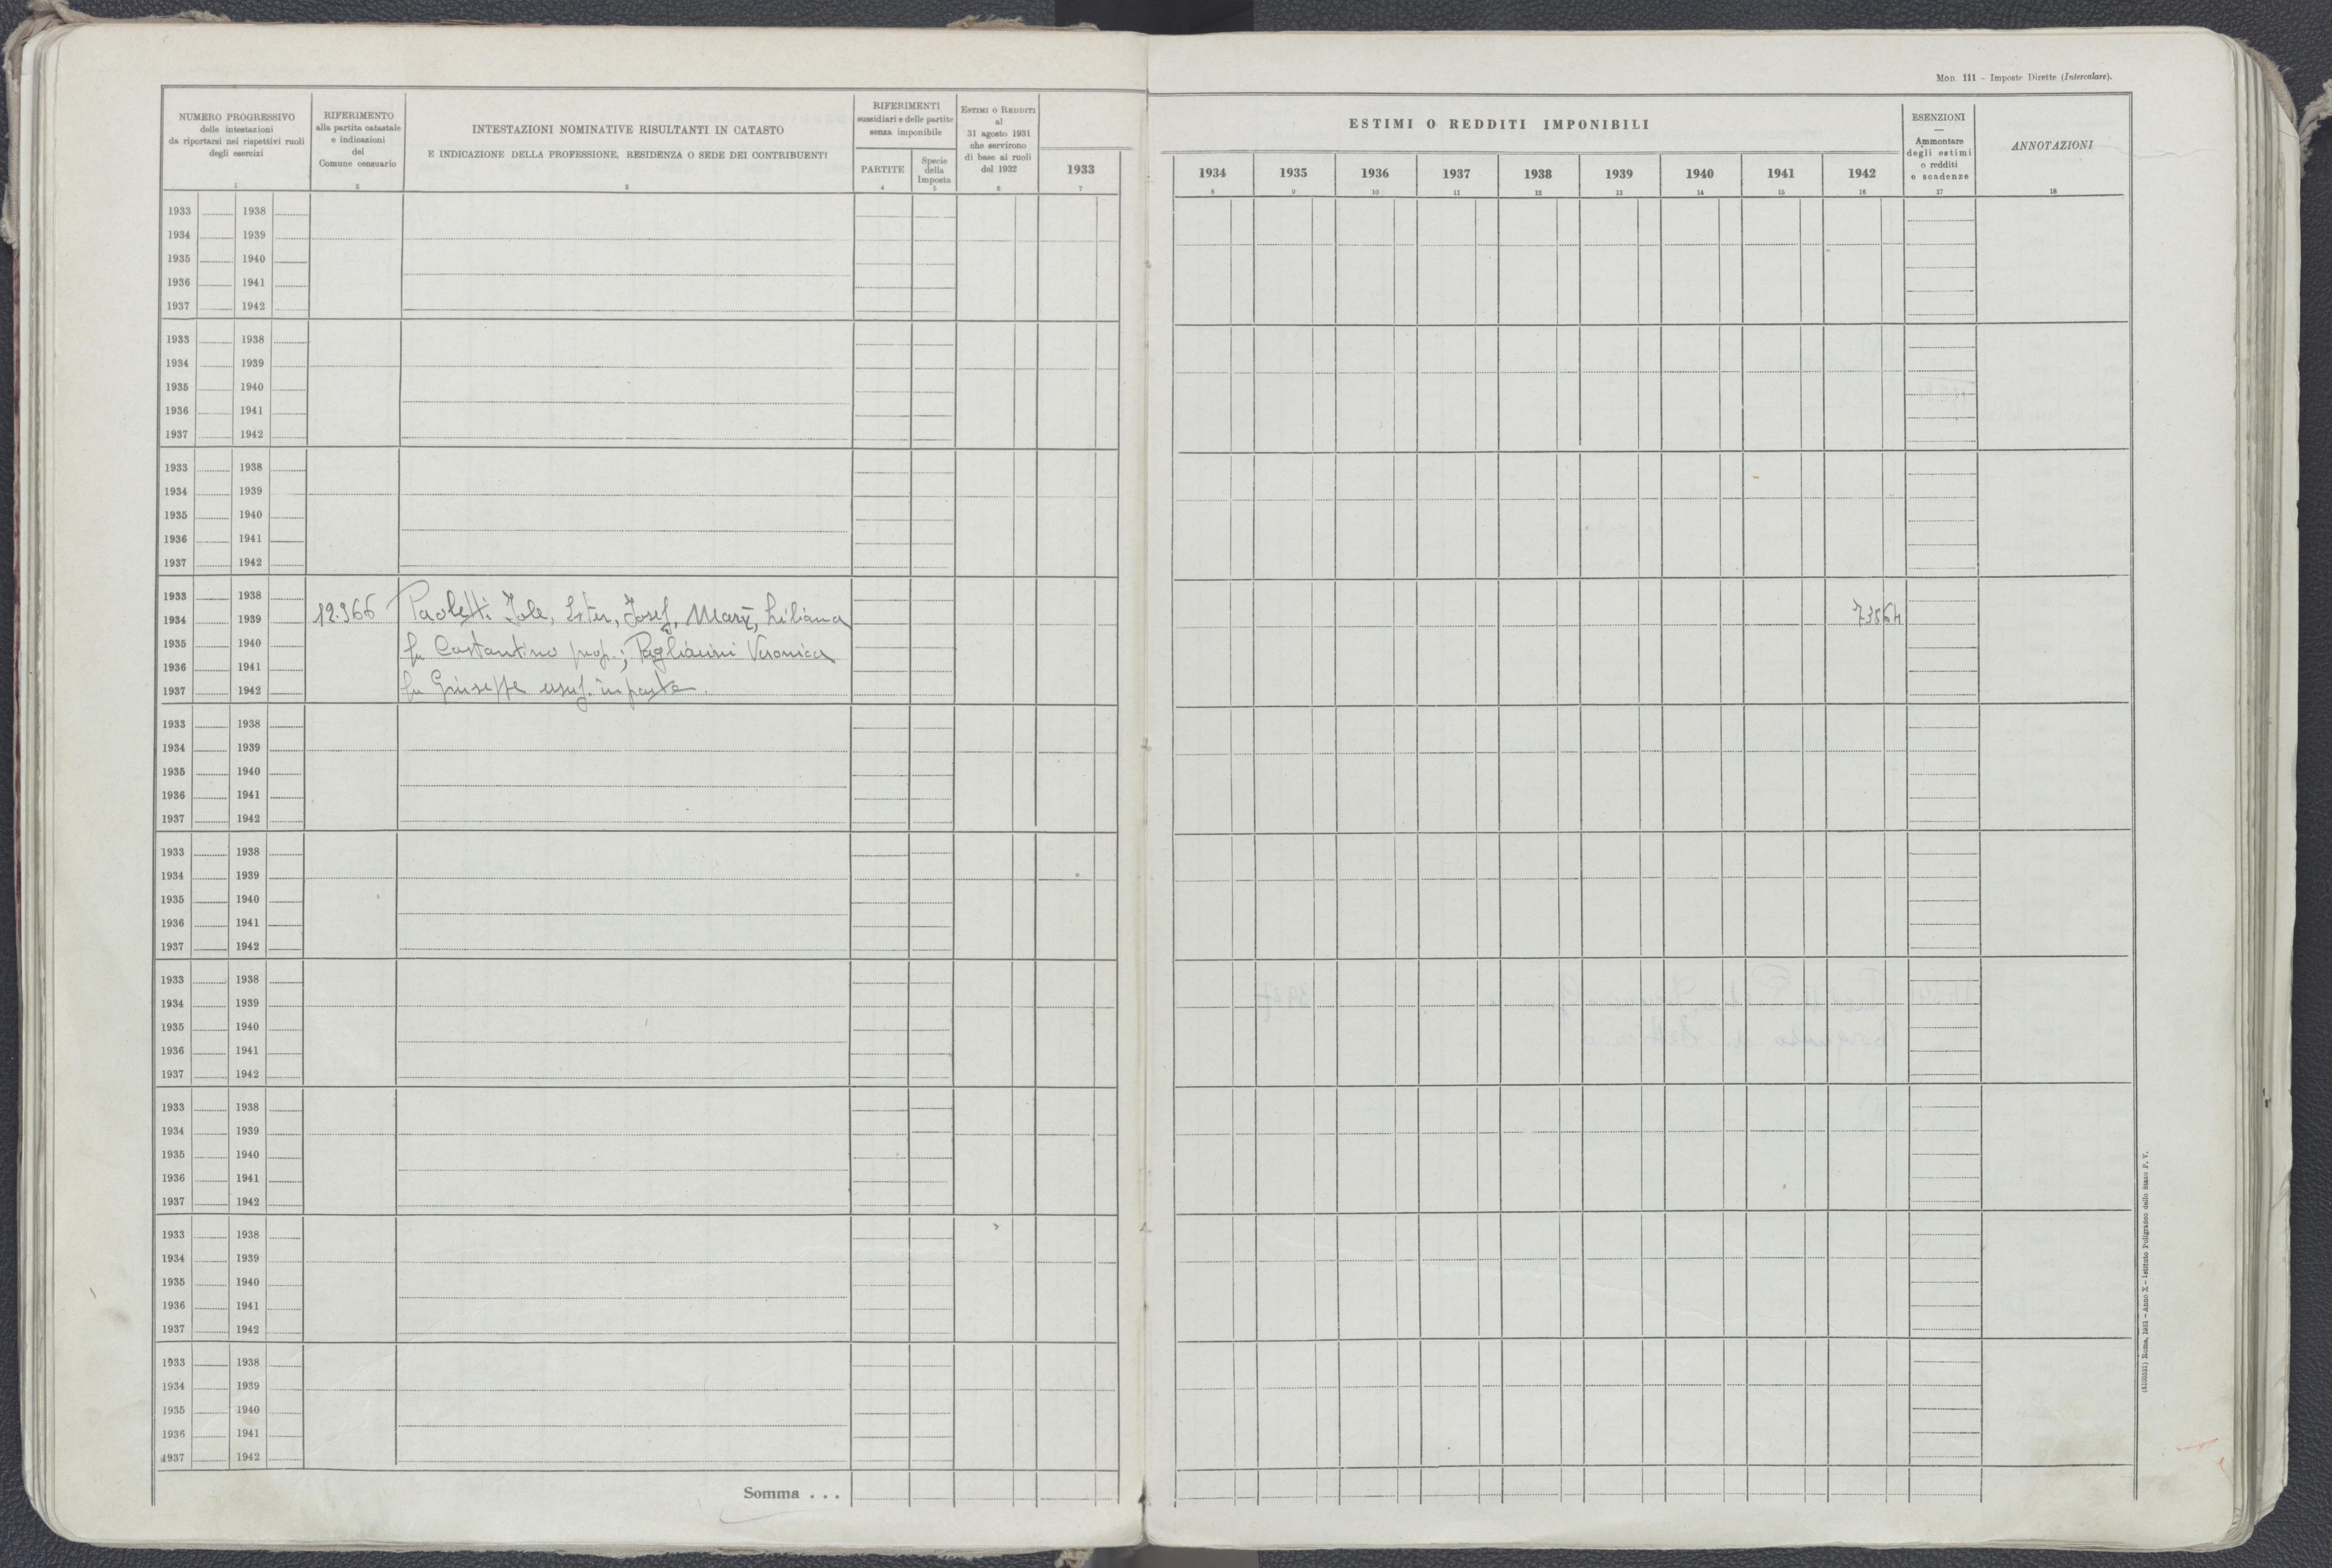 Mod. 111 - Imposte Dirette (Intercalare).
NUMERO PROGRESSIVO
delle intestazioni
da riportarsi nei rispettivi ruoli
degli esercizi
1
RIFERIMENTO
alla partita catastale
e indicazioni
del
Comune censuario
2
INTESTAZIONI NOMINATIVE RISULTANTI IN CATASTO
E INDICAZIONE DELLA PROFESSIONE, RESIDENZA O SEDE DEI CONTRIBUENTI
3
RIFERIMENTI
sussidiari e delle partite
senza imponibile
PARTITE
4
Specie
della
Imposta
5
ESTIMI O REDDITI
al
31 agosto 1931
che servirono
di base ai ruoli
del 1932
6
1933
7
ESTIMI O REDDITI IMPONIBILI
1934 1935 1936 1937 1938 1939 1940 1941 1942
8 9 10 11 12 13 14 15 16
ESENZIONI
—
Ammontare
degli estimi
o redditi
e scadenze
17
ANNOTAZIONI
18
1933 1938
1934 1939
1935 1940
1936 1941
1937 1942
1933 1938
1934 1939
1935 1940
1936 1941
1937 1942
1933 1938
1934 1939
1935 1940
1936 1941
1937 1942
1933 1938
1934 1939 12.366 Paoletti Jole, Ester, Josef, Mary, Liliana
1935 1940 fu Costantino prop.; Pagliarini Veronica
1936 1941
1937 1942 fu Giuseppe usuf. in parte.
1933 1938
1934 1939
1935 1940
1936 1941
1937 1942
1933 1938
1934 1939
1935 1940
1936 1941
1937 1942
1933 1938
1934 1939
1935 1940
1936 1941
1937 1942
1933 1938
1934 1939
1935 1940
1936 1941
1937 1942
1933 1938
1934 1939
1935 1940
1936 1941
1937 1942
1933 1938
1934 1939
1935 1940
1936 1941
1937 1942
Somma . . .
Roma, 1931 - Anno X - Istituto Poligrafico dello Stato P. V.